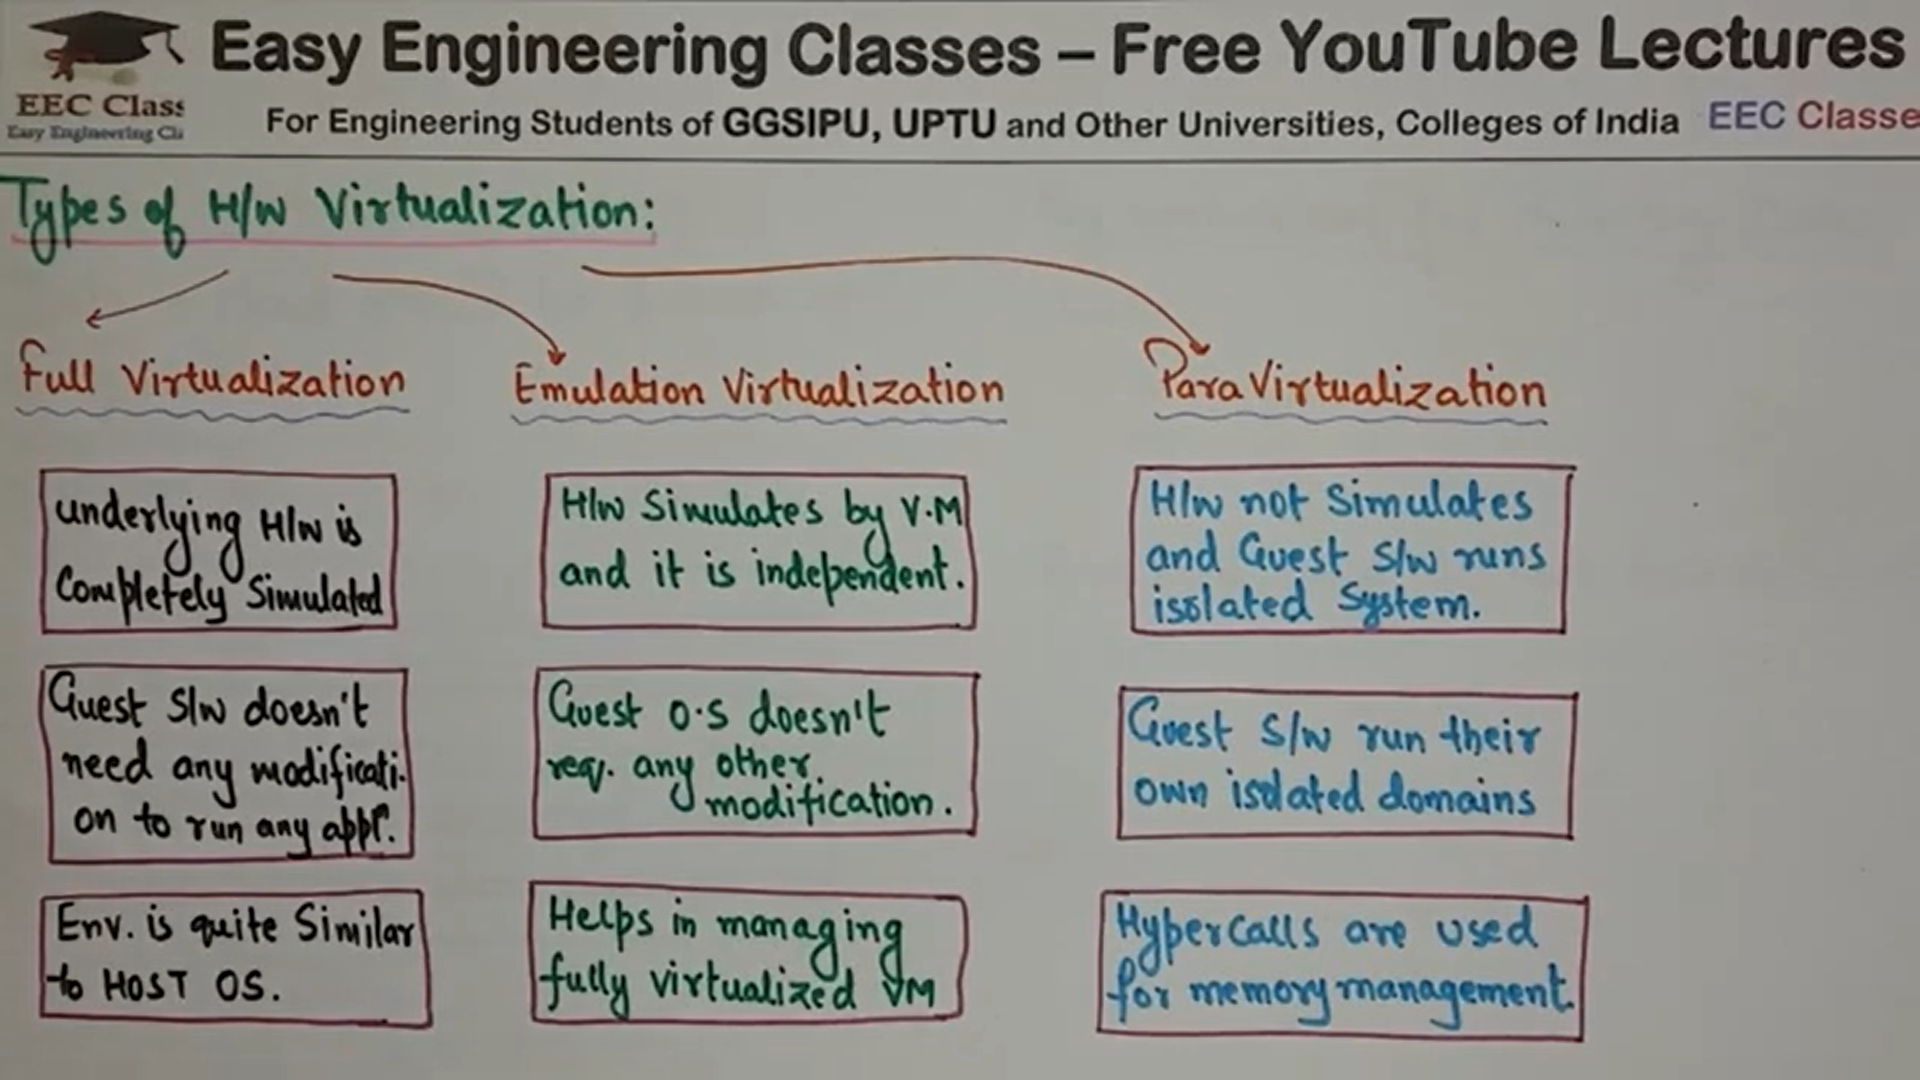 Easy Engineering Classes – Free YouTube Lectures
EEC Class
Easy Engineering Cla
For Engineering Students of GGSIPU, UPTU and Other Universities, Colleges of India EEC Classe
Types of H/W Virtualization:
Full Virtualization
underlying H/W is
Completely Simulated
Guest S/W doesn't
need any modificati-
on to run any appl.
Env. is quite Similar
to HOST OS.
Emulation Virtualization
H/W Simulates by V.M
and it is independent.
Guest O.S doesn't
req. any other
modification.
Helps in managing
fully virtualized VM
Para Virtualization
H/W not Simulates
and Guest S/W runs
isolated System.
Guest S/W run their
own isolated domains
Hypercalls are used
for memory management.